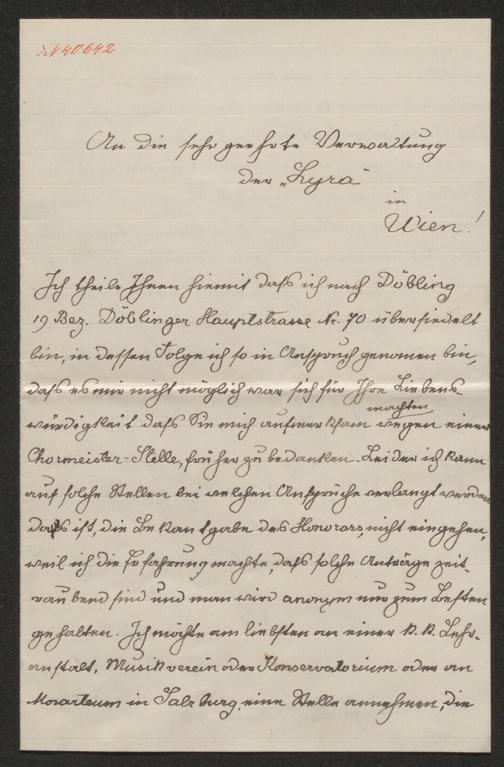 N 40642
An die sehr geehrte Verwaltung
der „Lyra"
in
Wien!
Ich theile Ihnen hiemit daſs ich nach Döbling
19 Bez. Döblinger Hauptstrasse Nr. 70 übersiedelt
bin, in dessen Folge ich so in Anspruch genomen bin,
daſs es mir nicht möglich war sich für Ihre Liebens-
machten
würdigkeit daſs Sie mich aufmerksam wegen einer
Chormeister-Stelle, früher zu bedanken. Leider ich kann
auf solche Stellen bei welchen Ansprüche verlangt werden
das ist, die Bekantgabe des Honorars, nicht eingehen,
weil ich die Erfahrung machte, daſs solche Anträge zeit-
raubend sind und man wird anonym nur zum Besten
gehalten. Ich möchte am liebsten an einer k. k. Lehr-
anstalt, Musikverein oder Konservatorium oder an
Mozarteum in Salzburg eine Stelle annehmen, die